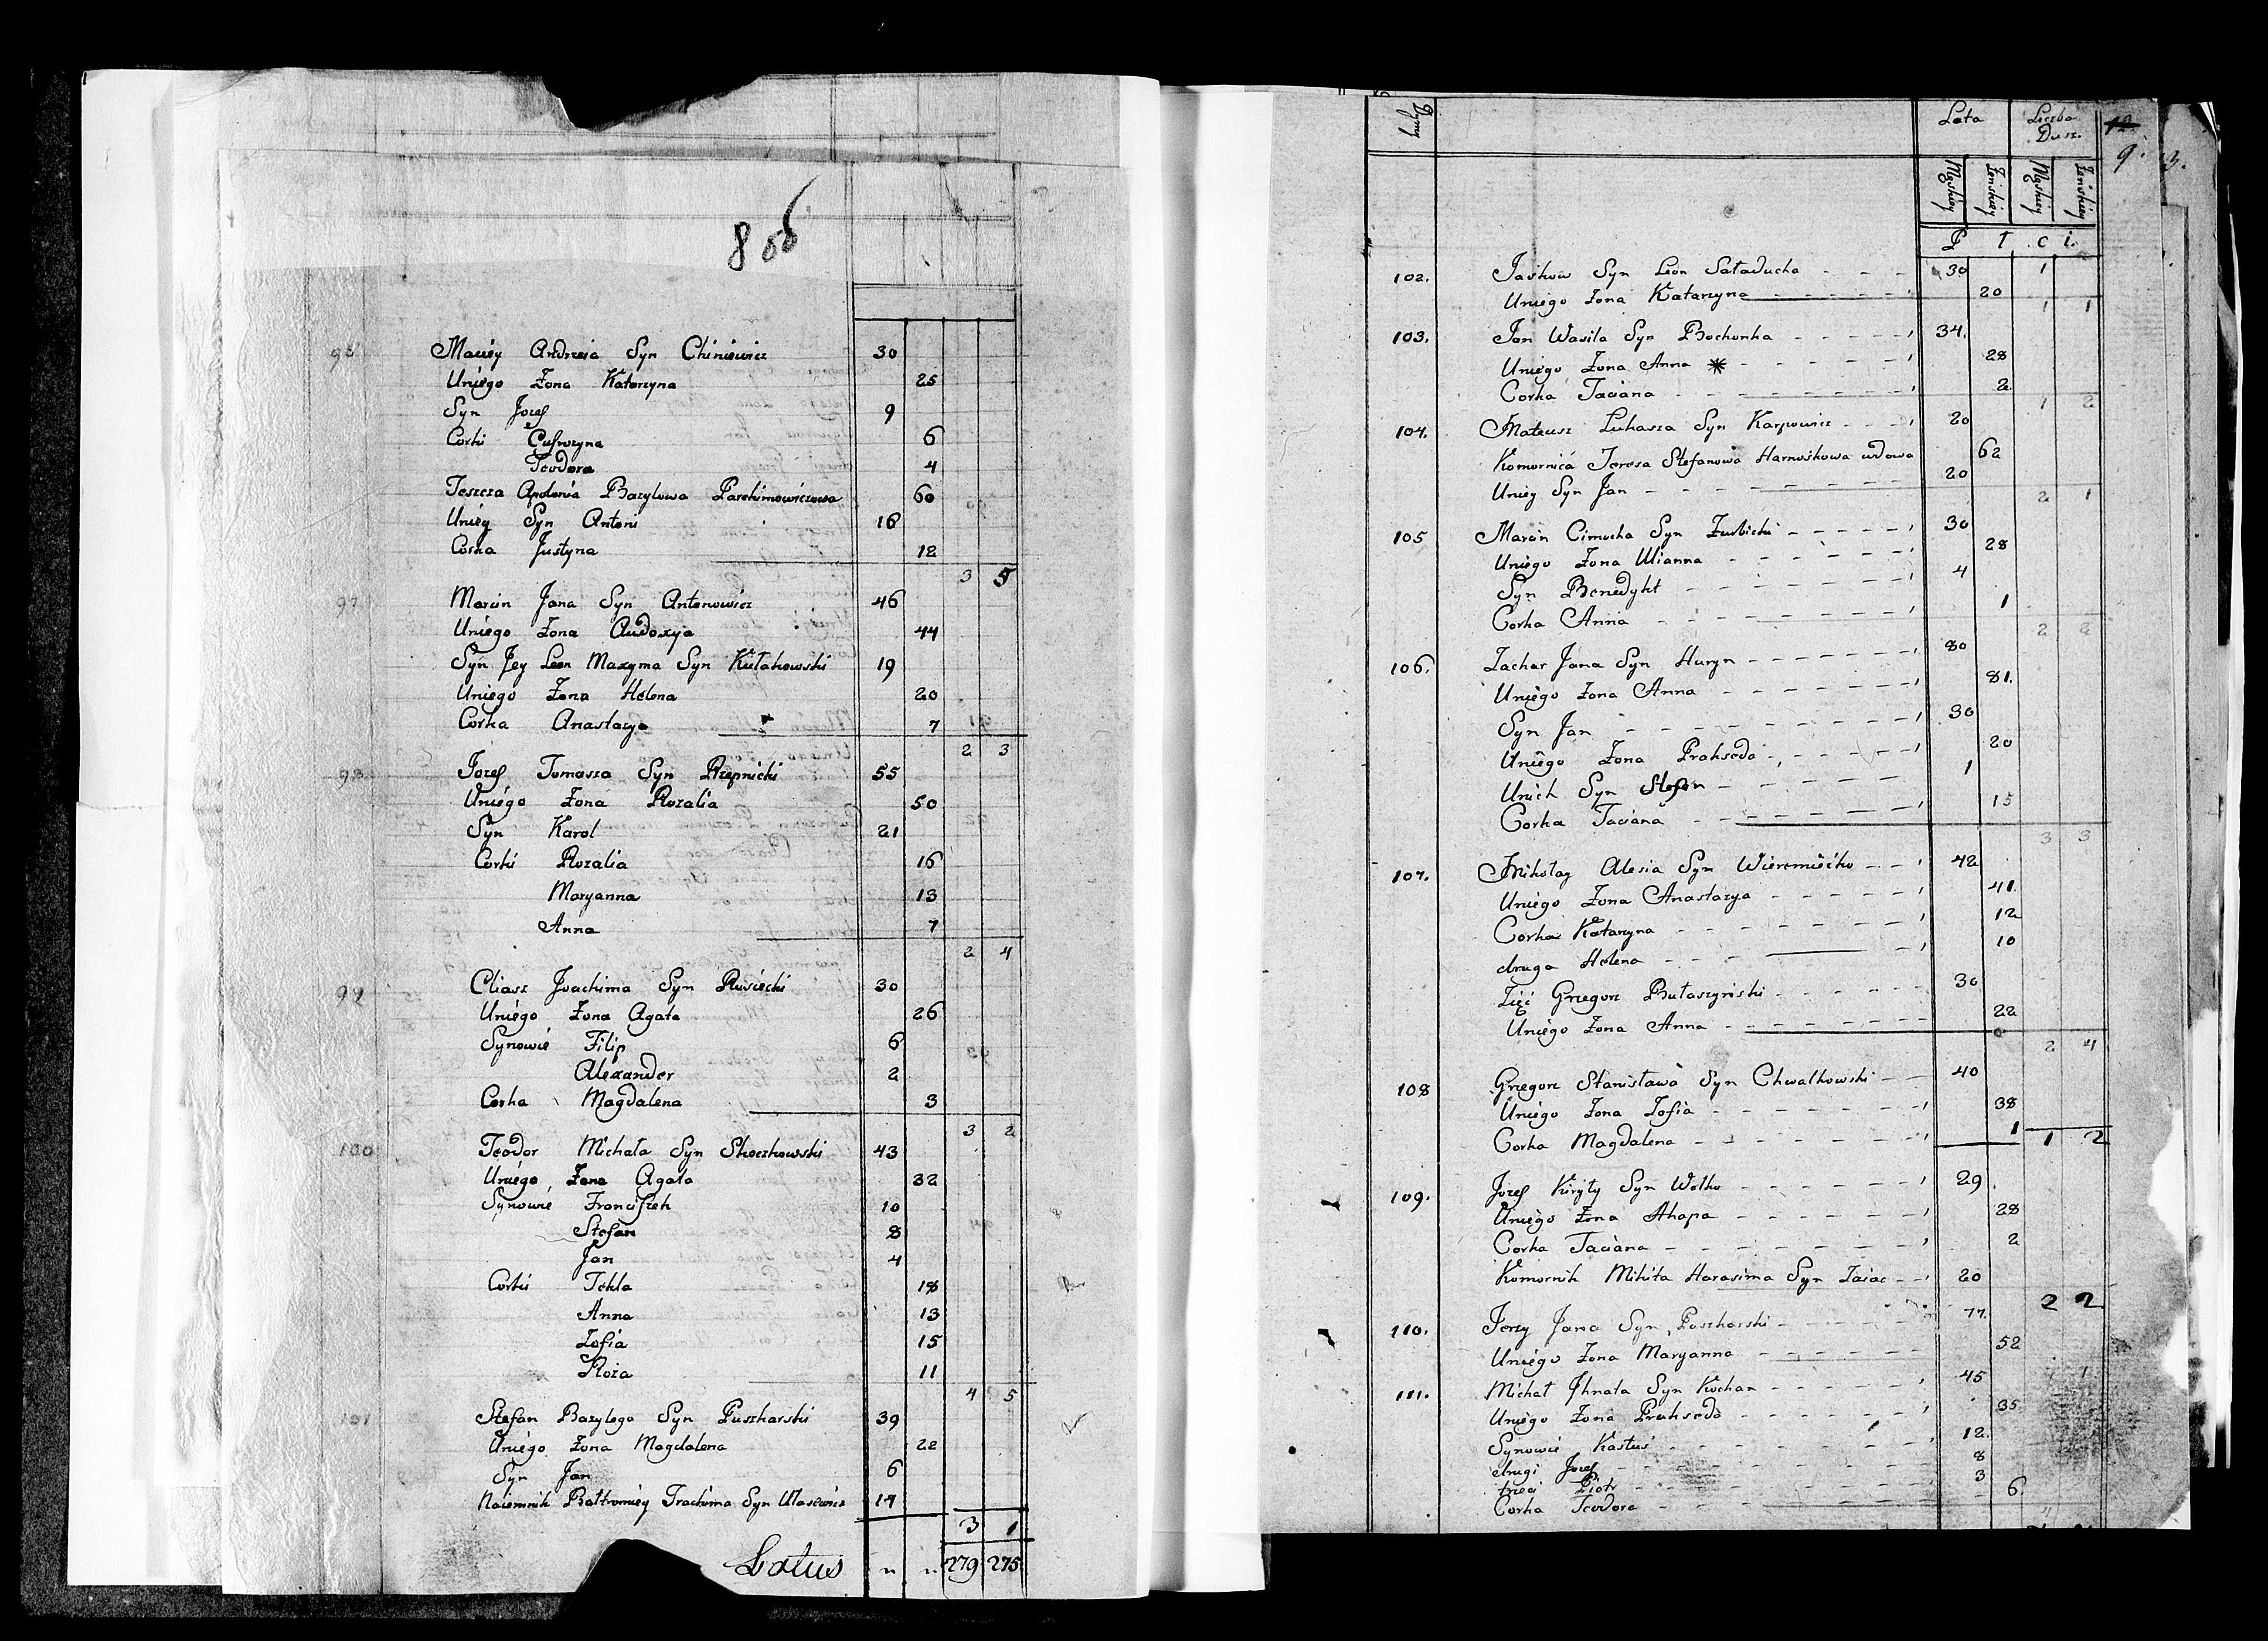 8
95 Maciey Andrzeia Syn Chiniewicz 30
Uniego Żona Katarzyna 25
Syn Jozef 9
Corki Eufrozyna 6
Teodora 4
Teszcza Apolonia Bazylowa Parchimowiczowa 60
Uniey Syn Antoni 16
Corka Justyna 12
3 5
97 Marcin Jana Syn Antonowicz 46
Uniego Żona Audoxya 44
Syn Jey Leon Maxyma Syn Kułakowski 19
Uniego Żona Helena 20
Corka Anastazya 7
2 3
98 Jozef Tomasza Syn Rzepnicki 55
Uniego Żona Rozalia 50
Syn Karol 21
Corki Rozalia 16
Maryanna 13
Anna 7
2 4
99 Eliasz Joachima Syn Rusiecki 30
Uniego Żona Agata 26
Synowie Filip 6
Alexander 2
Corka Magdalena 3
3 2
100 Teodor Michała Syn Skoczkowski 43
Uniego Żona Agata 32
Synowie Franciszek 10
Stefan 8
Jan 4
Corki Tekla 18
Anna 13
Zofia 15
Roza 11
4 5
101 Stefan Bazylego Syn Puszkarski 39
Uniego Żona Magdalena 22
Syn Jan 6
Naiemnik Bałtromiey Trachima Syn Ułasewicz 17
3 1
Latus " " 279 275
Dymy Lata Liczba Dusz. 12
9. 13.
Męskiey Żeńskiey Męskiey Żeńskiey
P ł c i.
102. Jaśkow Syn Leon Saładucha 30 1
Uniego Żona Katarzyna 20
1 1
103. Jan Wasila Syn Bochonka 34.
Uniego Żona Anna * 28
Corka Taciana 2
1 2
104. Mateusz Łukasza Syn Karpowicz 20
Komornica Teresa Stefanowa Harnośkowa wdowa 62
Uniey Syn Jan 20
2 1
105 Marcin Cimocha Syn Zubicki 30
Uniego Żona Ulianna 28
Syn Benedykt 4
Corka Anna 1
2 2
106. Zachar Jana Syn Huryn 80
Uniego Żona Anna 81.
Syn Jan 30
Uniego Żona Prakseda 20
Unich Syn Stefan 1
Corka Taciana 15
3 3
107. Mikołay Alesia Syn Wieremieiko 42
Uniego Żona Anastazya 41.
Corka Katarzyna 12
druga Helena 10
Zięć Grzegorz Bułaszyński 30
Uniego Żona Anna 22
2 4
108 Grzegorz Stanisława Syn Chwałkowski 40
Uniego Żona Zofia 38
Corka Magdalena 1
1 2
109. Jozef Kiryły Syn Wołko 29
Uniego Żona Ahapa 28
Corka Taciana 2
Komornik Mikita Harasima Syn Zaiac 20
2 2
110. Jerzy Jana Syn Puszkarski 77.
Uniego Żona Maryanna 52
1 1
111. Michał Ihnata Syn Kochan 45
Uniego Żona Prakseda 35
Synowie Kastuś 12.
drugi Jozef 8
trzeci Piotr 3
Corka Teodora 6